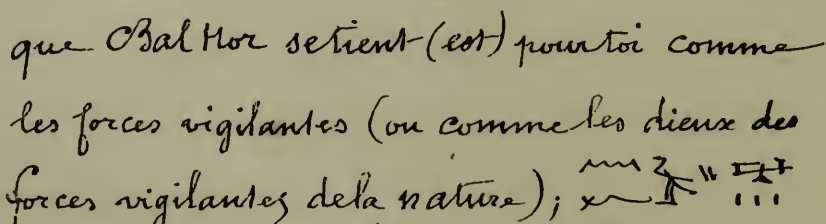 que Bal Hor se tient (est) pour toi comme
les forces vigilantes (ou comme les dieux des
forces vigilantes de la nature);